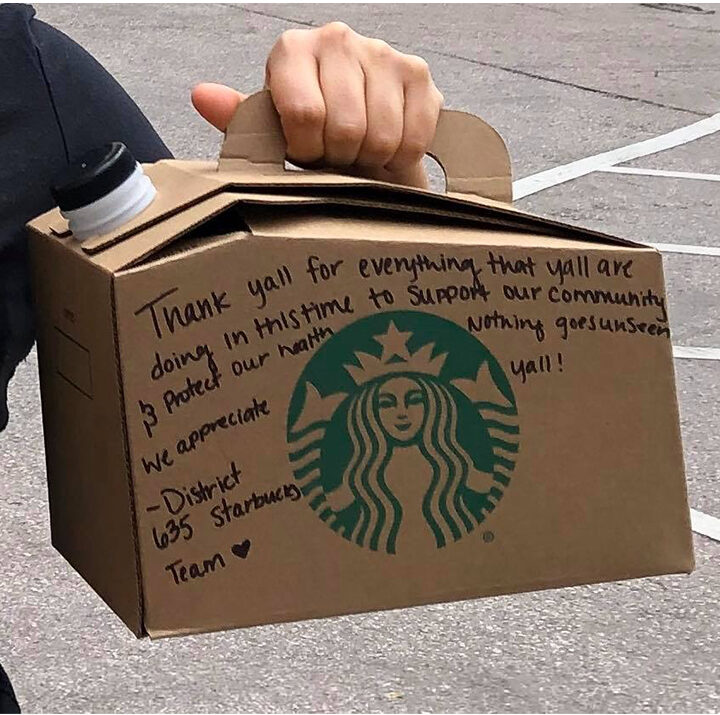 Thank yall for everything that yall are
doing in this time to support our community
& protect our health Nothing goes unseen
We appreciate yall!
-District
635 Starbucks
Team ♥
®